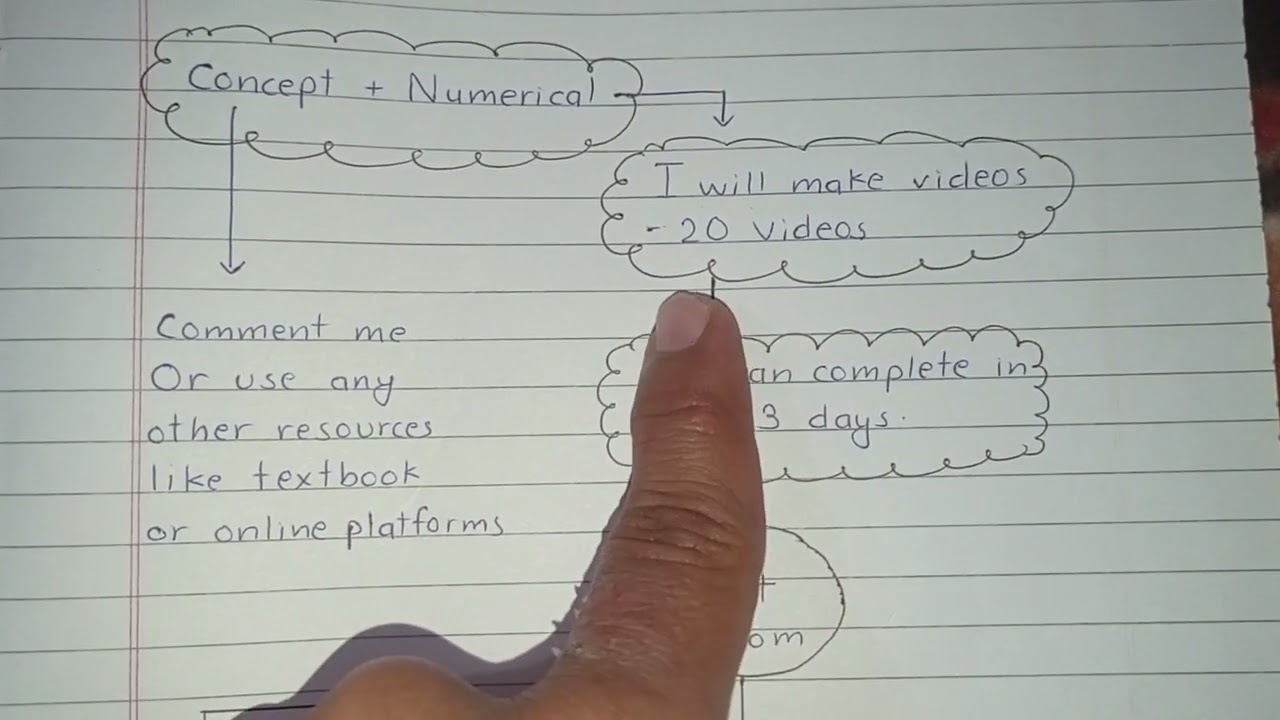 Concept + Numerical
I will make videos
- 20 videos
Comment me
Or use any
other resources
like textbook
or online platforms
complete in
3 days.